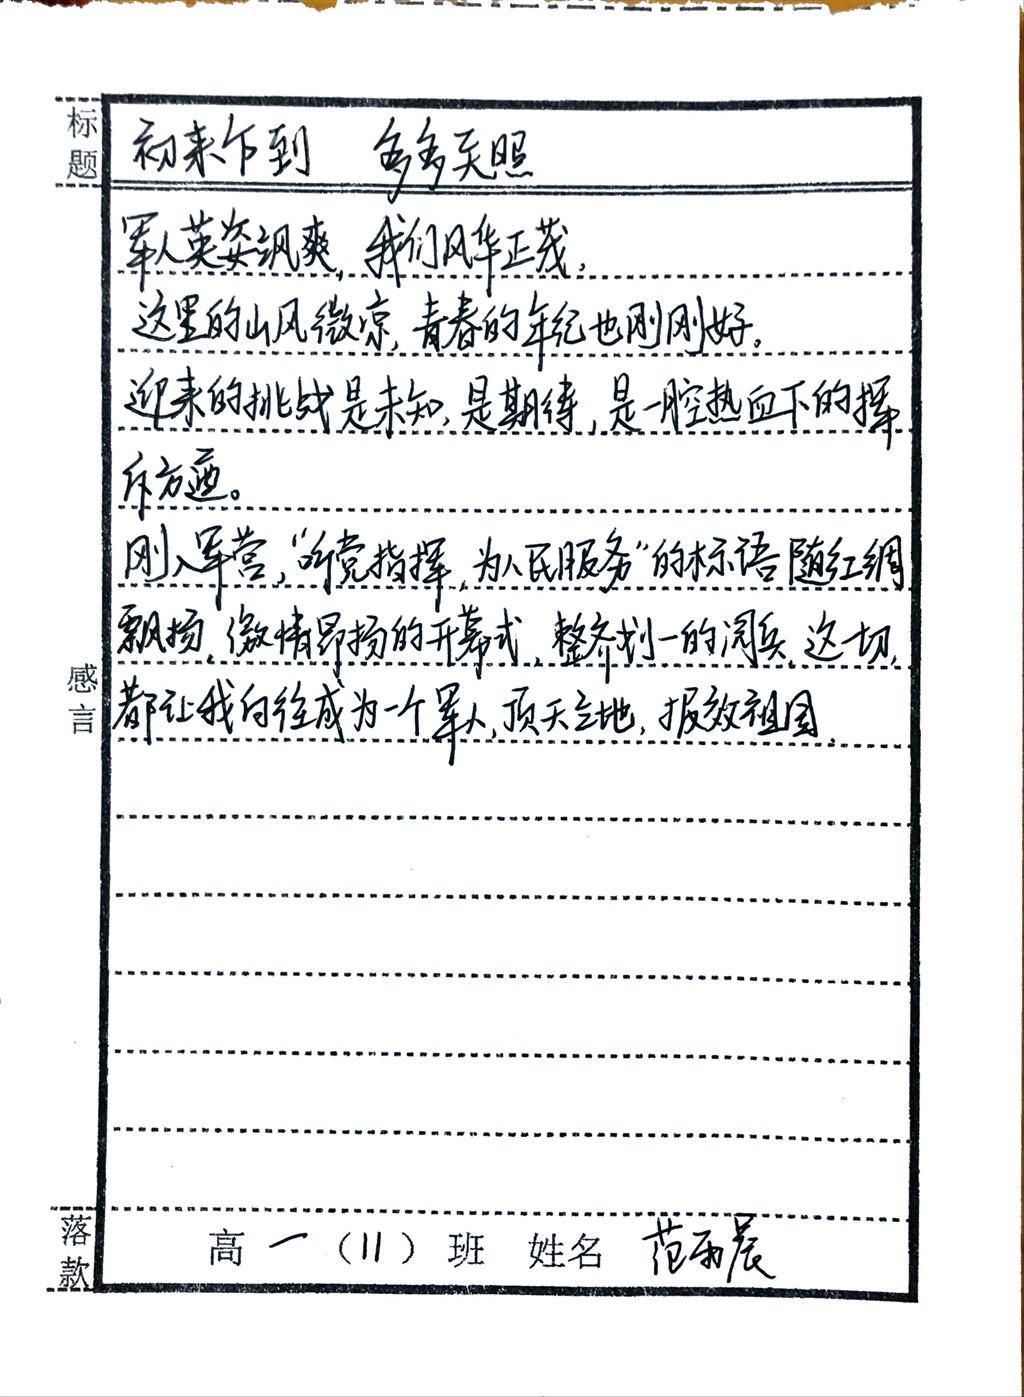 标题
初来乍到 多多关照
军人英姿飒爽，我们风华正茂。
这里的山风微凉，青春的年纪也刚刚好。
迎来的挑战是未知，是期待，是一腔热血下的挥
斥方遒。
刚入军营，“听党指挥，为人民服务”的标语随红绸
飘扬，激情昂扬的开幕式，整齐划一的阅兵，这一切，
都让我向往成为一个军人，顶天立地，报效祖国。
感言
落款
高一（11）班 姓名 范雨晨